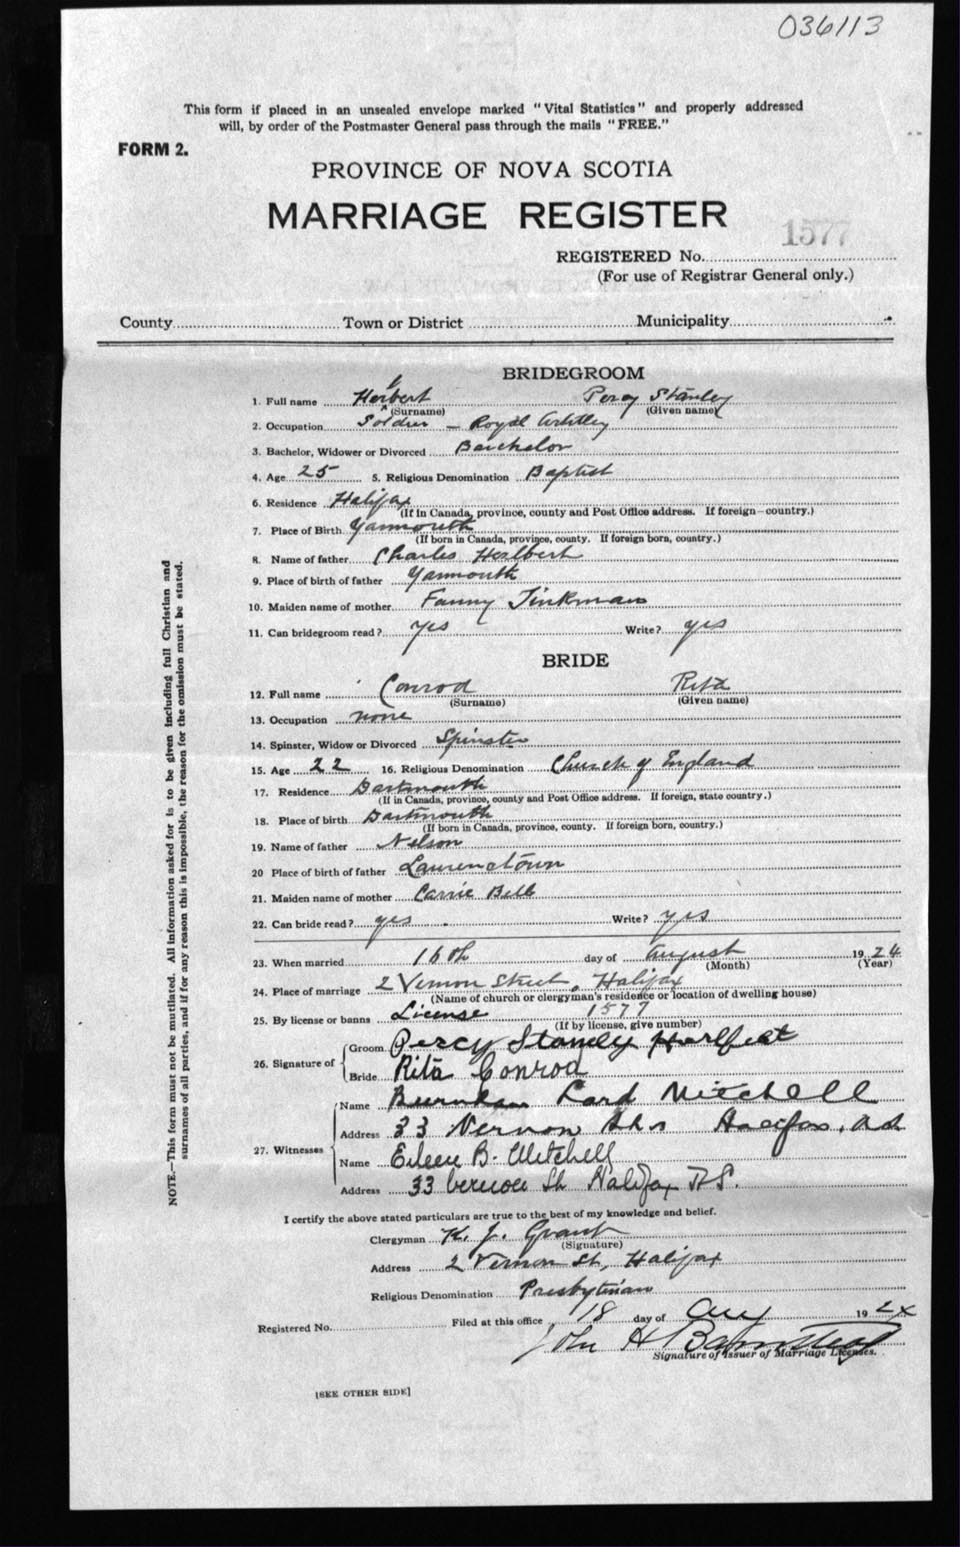 036113
This form if placed in an unsealed envelope marked "Vital Statistics" and properly addressed
will, by order of the Postmaster General pass through the mails "FREE."
FORM 2.
PROVINCE OF NOVA SCOTIA
MARRIAGE REGISTER
1577
REGISTERED No.
(For use of Registrar General only.)
County Town or District Municipality
BRIDEGROOM
1. Full name Percy Stanley
(Surname) (Given name)
2. Occupation Soldier - Royal
3. Bachelor, Widower or Divorced Batchelor
4. Age 25 5. Religious Denomination Baptist
6. Residence Halifax
(If in Canada, province, county and Post Office address. If foreign—country.)
7. Place of Birth Yarmouth
(If born in Canada, province, county. If foreign born, country.)
8. Name of father Charles
9. Place of birth of father Yarmouth
10. Maiden name of mother Fanny Tinkman
11. Can bridegroom read? yes Write? yes
BRIDE
12. Full name Conrod Rita
(Surname) (Given name)
13. Occupation none
14. Spinster, Widow or Divorced Spinster
15. Age 22 16. Religious Denomination Church of England
17. Residence Dartmouth
(If in Canada, province, county and Post Office address. If foreign, state country.)
18. Place of birth Dartmouth
(If born in Canada, province, county. If foreign born, country.)
19. Name of father Nelson
20 Place of birth of father Laurencetown
21. Maiden name of mother Carrie Bell
22. Can bride read? yes Write? yes
23. When married 16th day of August 1924
(Month) (Year)
24. Place of marriage 2 Vernon Street, Halifax
(Name of church or clergyman's residence or location of dwelling house)
25. By license or banns License 1577
(If by license, give number)
26. Signature of Groom Percy Stanely
Bride Rita Conrod
27. Witnesses Name Mitchell
Address 33 Vernon Halifax, N.S.
Name Eileen B. Mitchell
Address 33 Vernon St. Halifax N.S.
I certify the above stated particulars are true to the best of my knowledge and belief.
Clergyman K. J. Grant
(Signature)
Address 2 Vernon St, Halifax
Religious Denomination Presbyterian
Registered No. Filed at this office 18 day of Aug 1924
John H Barnstead
Signature of Issuer of Marriage Licenses.
[SEE OTHER SIDE]
NOTE.—This form must not be mutilated. All information asked for is to be given including full Christian and
surnames of all parties, and if for any reason this is impossible, the reason for the omission must be stated.